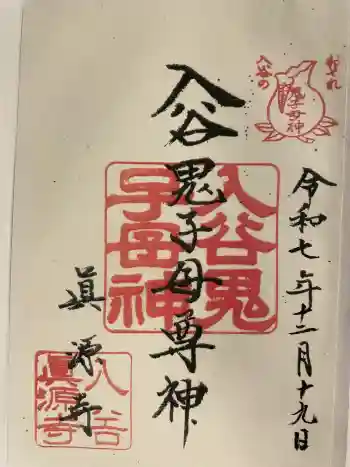 おそれ
入谷の
鬼子母神
令和七年十二月十九日
入谷鬼子母尊神
入谷鬼
子母神
眞源寺
入谷
眞源寺